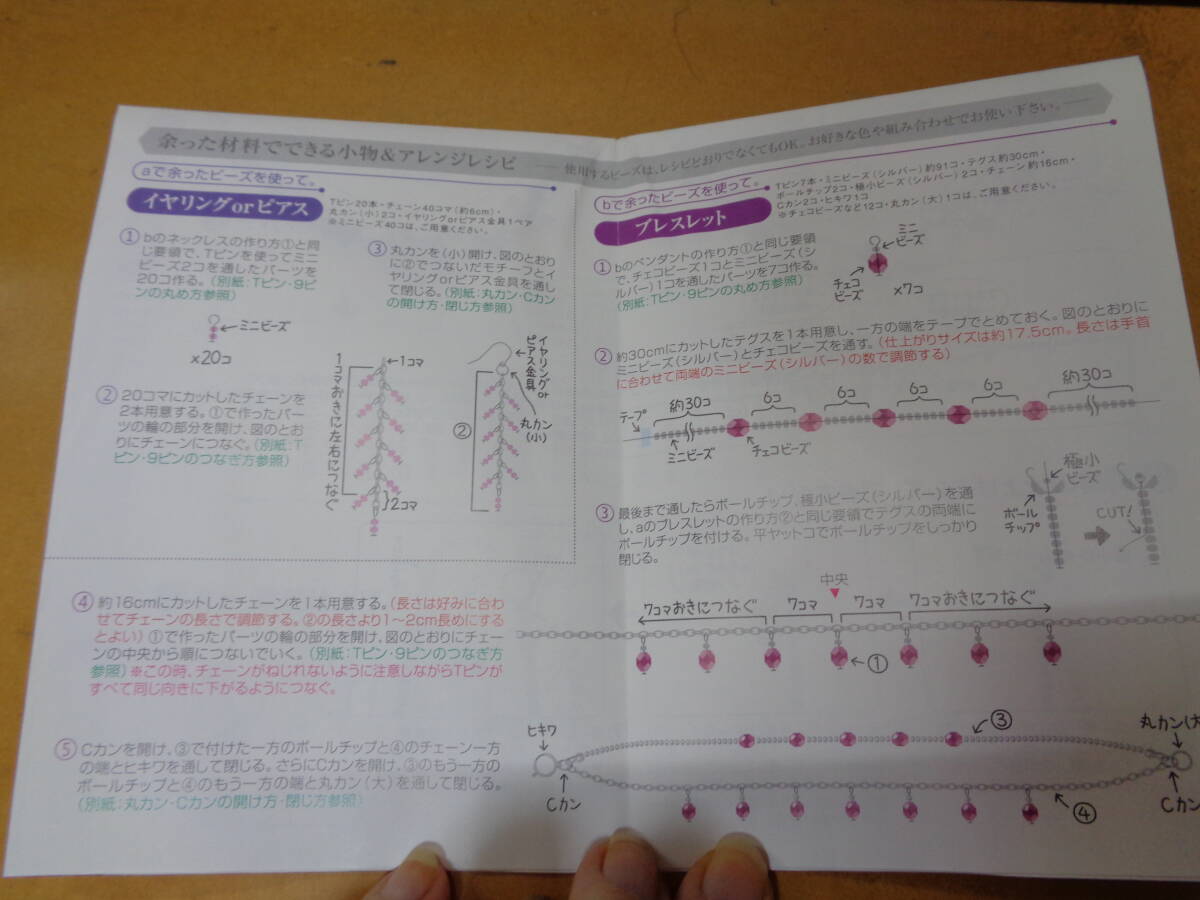 余った材料でできる小物&アレンジレシピ
使用するビーズは、レシピどおりでなくてもOK。お好きな色や組み合わせでお使い下さい。
aで余ったビーズを使って。
イヤリングorピアス
Tピン20本・チェーン40コマ(約6cm)・
丸カン(小)2コ・イヤリングorピアス金具1ペア
※ミニビーズ40コは、ご用意ください。
① bのネックレスの作り方①と同
じ要領で、Tピンを使ってミニ
ビーズ2コを通したパーツを
20コ作る。(別紙:Tピン・9ピ
ンの丸め方参照)
ミニビーズ
×20コ
② 20コマにカットしたチェーンを
2本用意する。①で作ったパー
ツの輪の部分を開け、図のとお
りにチェーンにつなぐ。(別紙:T
ピン・9ピンのつなぎ方参照)
③ 丸カンを(小)開け、図のとおり
に②でつないだモチーフとイ
ヤリングorピアス金具を通し
て閉じる。(別紙:丸カン・Cカン
の開け方・閉じ方参照)
1コマ
1コマおきに左右につなぐ
2コマ
イヤリングor
ピアス金具
丸カン
(小)
②
bで余ったビーズを使って。
ブレスレット
Tピン7本・ミニビーズ(シルバー)約91コ・テグス約30cm・
ボールチップ2コ・極小ビーズ(シルバー)2コ・チェーン約16cm・
Cカン2コ・ヒキワ1コ
※チェコビーズなど12コ・丸カン(大)1コは、ご用意ください。
① bのペンダントの作り方①と同じ要領
で、チェコビーズ1コとミニビーズ(シ
ルバー)1コを通したパーツを7コ作る。
(別紙:Tピン・9ピンの丸め方参照)
ミニ
ビーズ
チェコ
ビーズ
×7コ
② 約30cmにカットしたテグスを1本用意し、一方の端をテープでとめておく。図のとおりに
ミニビーズ(シルバー)とチェコビーズを通す。(仕上がりサイズは約17.5cm。長さは手首
に合わせて両端のミニビーズ(シルバー)の数で調節する)
テープ
約30コ
6コ
6コ
6コ
6コ
約30コ
ミニビーズ
チェコビーズ
③ 最後まで通したらボールチップ、極小ビーズ(シルバー)を通
し、aのブレスレットの作り方②と同じ要領でテグスの両端に
ボールチップを付ける。平ヤットコでボールチップをしっかり
閉じる。
極小
ビーズ
ボール
チップ
CUT!
④ 約16cmにカットしたチェーンを1本用意する。(長さは好みに合わ
せてチェーンの長さで調節する。②の長さより1〜2cm長めにする
とよい)①で作ったパーツの輪の部分を開け、図のとおりにチェー
ンの中央から順につないでいく。(別紙:Tピン・9ピンのつなぎ方
参照)※この時、チェーンがねじれないように注意しながらTピンが
すべて同じ向きに下がるようにつなぐ。
中央
7コマおきにつなぐ
7コマ
7コマ
7コマおきにつなぐ
①
⑤ Cカンを開け、③で付けた一方のボールチップと④のチェーン一方
の端とヒキワを通して閉じる。さらにCカンを開け、③のもう一方の
ボールチップと④のもう一方の端と丸カン(大)を通して閉じる。
(別紙:丸カン・Cカンの開け方・閉じ方参照)
ヒキワ
Cカン
③
丸カン(大
Cカン
④